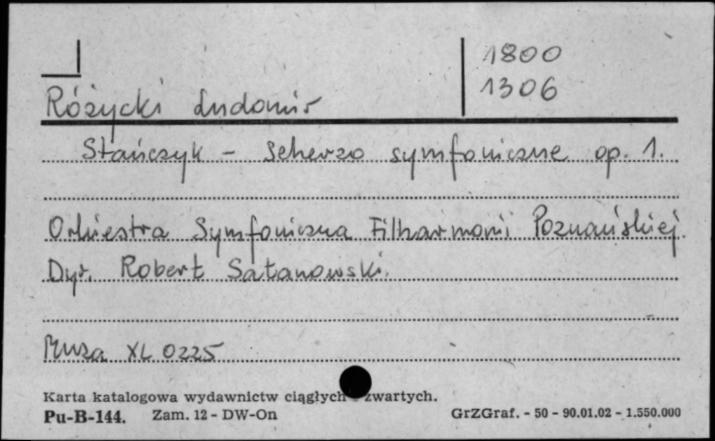 1800
1306
Różycki Ludomir
Stańczyk - Scherzo symfoniczne op. 1.
Orkiestra Symfoniczna Filharmonii Poznańskiej.
Dyr. Robert Satanowski.
Muza XL 0225
Karta katalogowa wydawnictw ciągłych zwartych.
Pu-B-144. Zam. 12 - DW-On GrZGraf. - 50 - 90.01.02 - 1.550.000